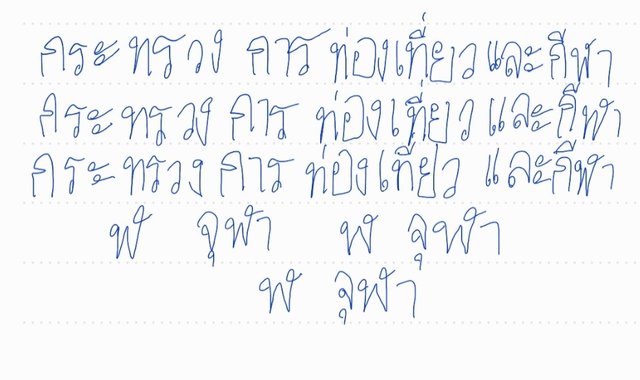 กระทรวง การ ท่องเที่ยวและกีฬา
กระทรวง การ ท่องเที่ยว และกีฬา
กระทรวง การ ท่องเที่ยว และกีฬา
ฬ จุฬา ฬ จุฬา
ฬ จุฬา